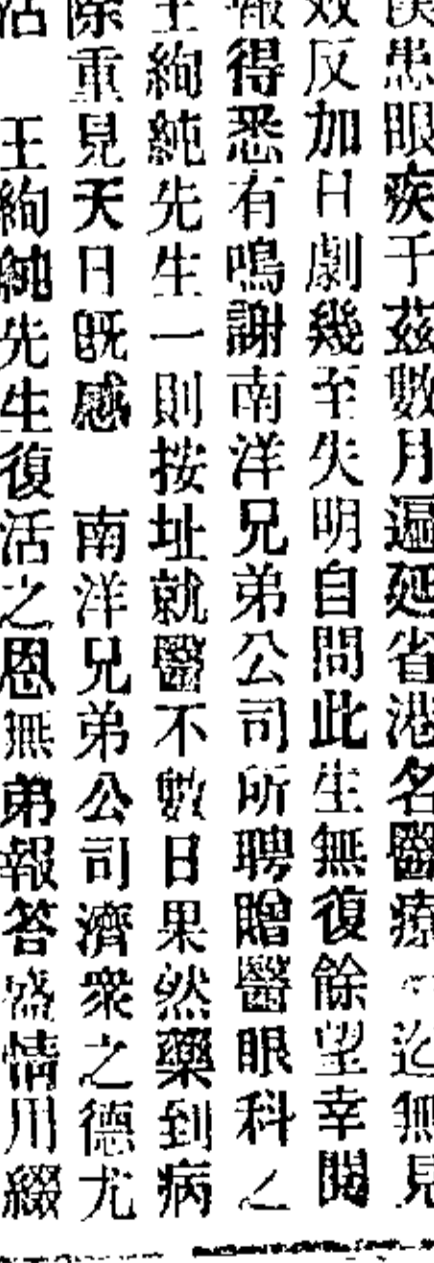 患眼疾于茲數月遍延省港名醫療迄無見
效反加日劇幾至失明自問此生無復餘望幸閱
報得悉有鳴謝南洋兄弟公司所聘贈醫眼科之
王絢純先生一則按址就醫不數日果然藥到病
除重見天日旣感 南洋兄弟公司濟衆之德尤
活 王絢純先生復活之恩無弟報答盛情用綴